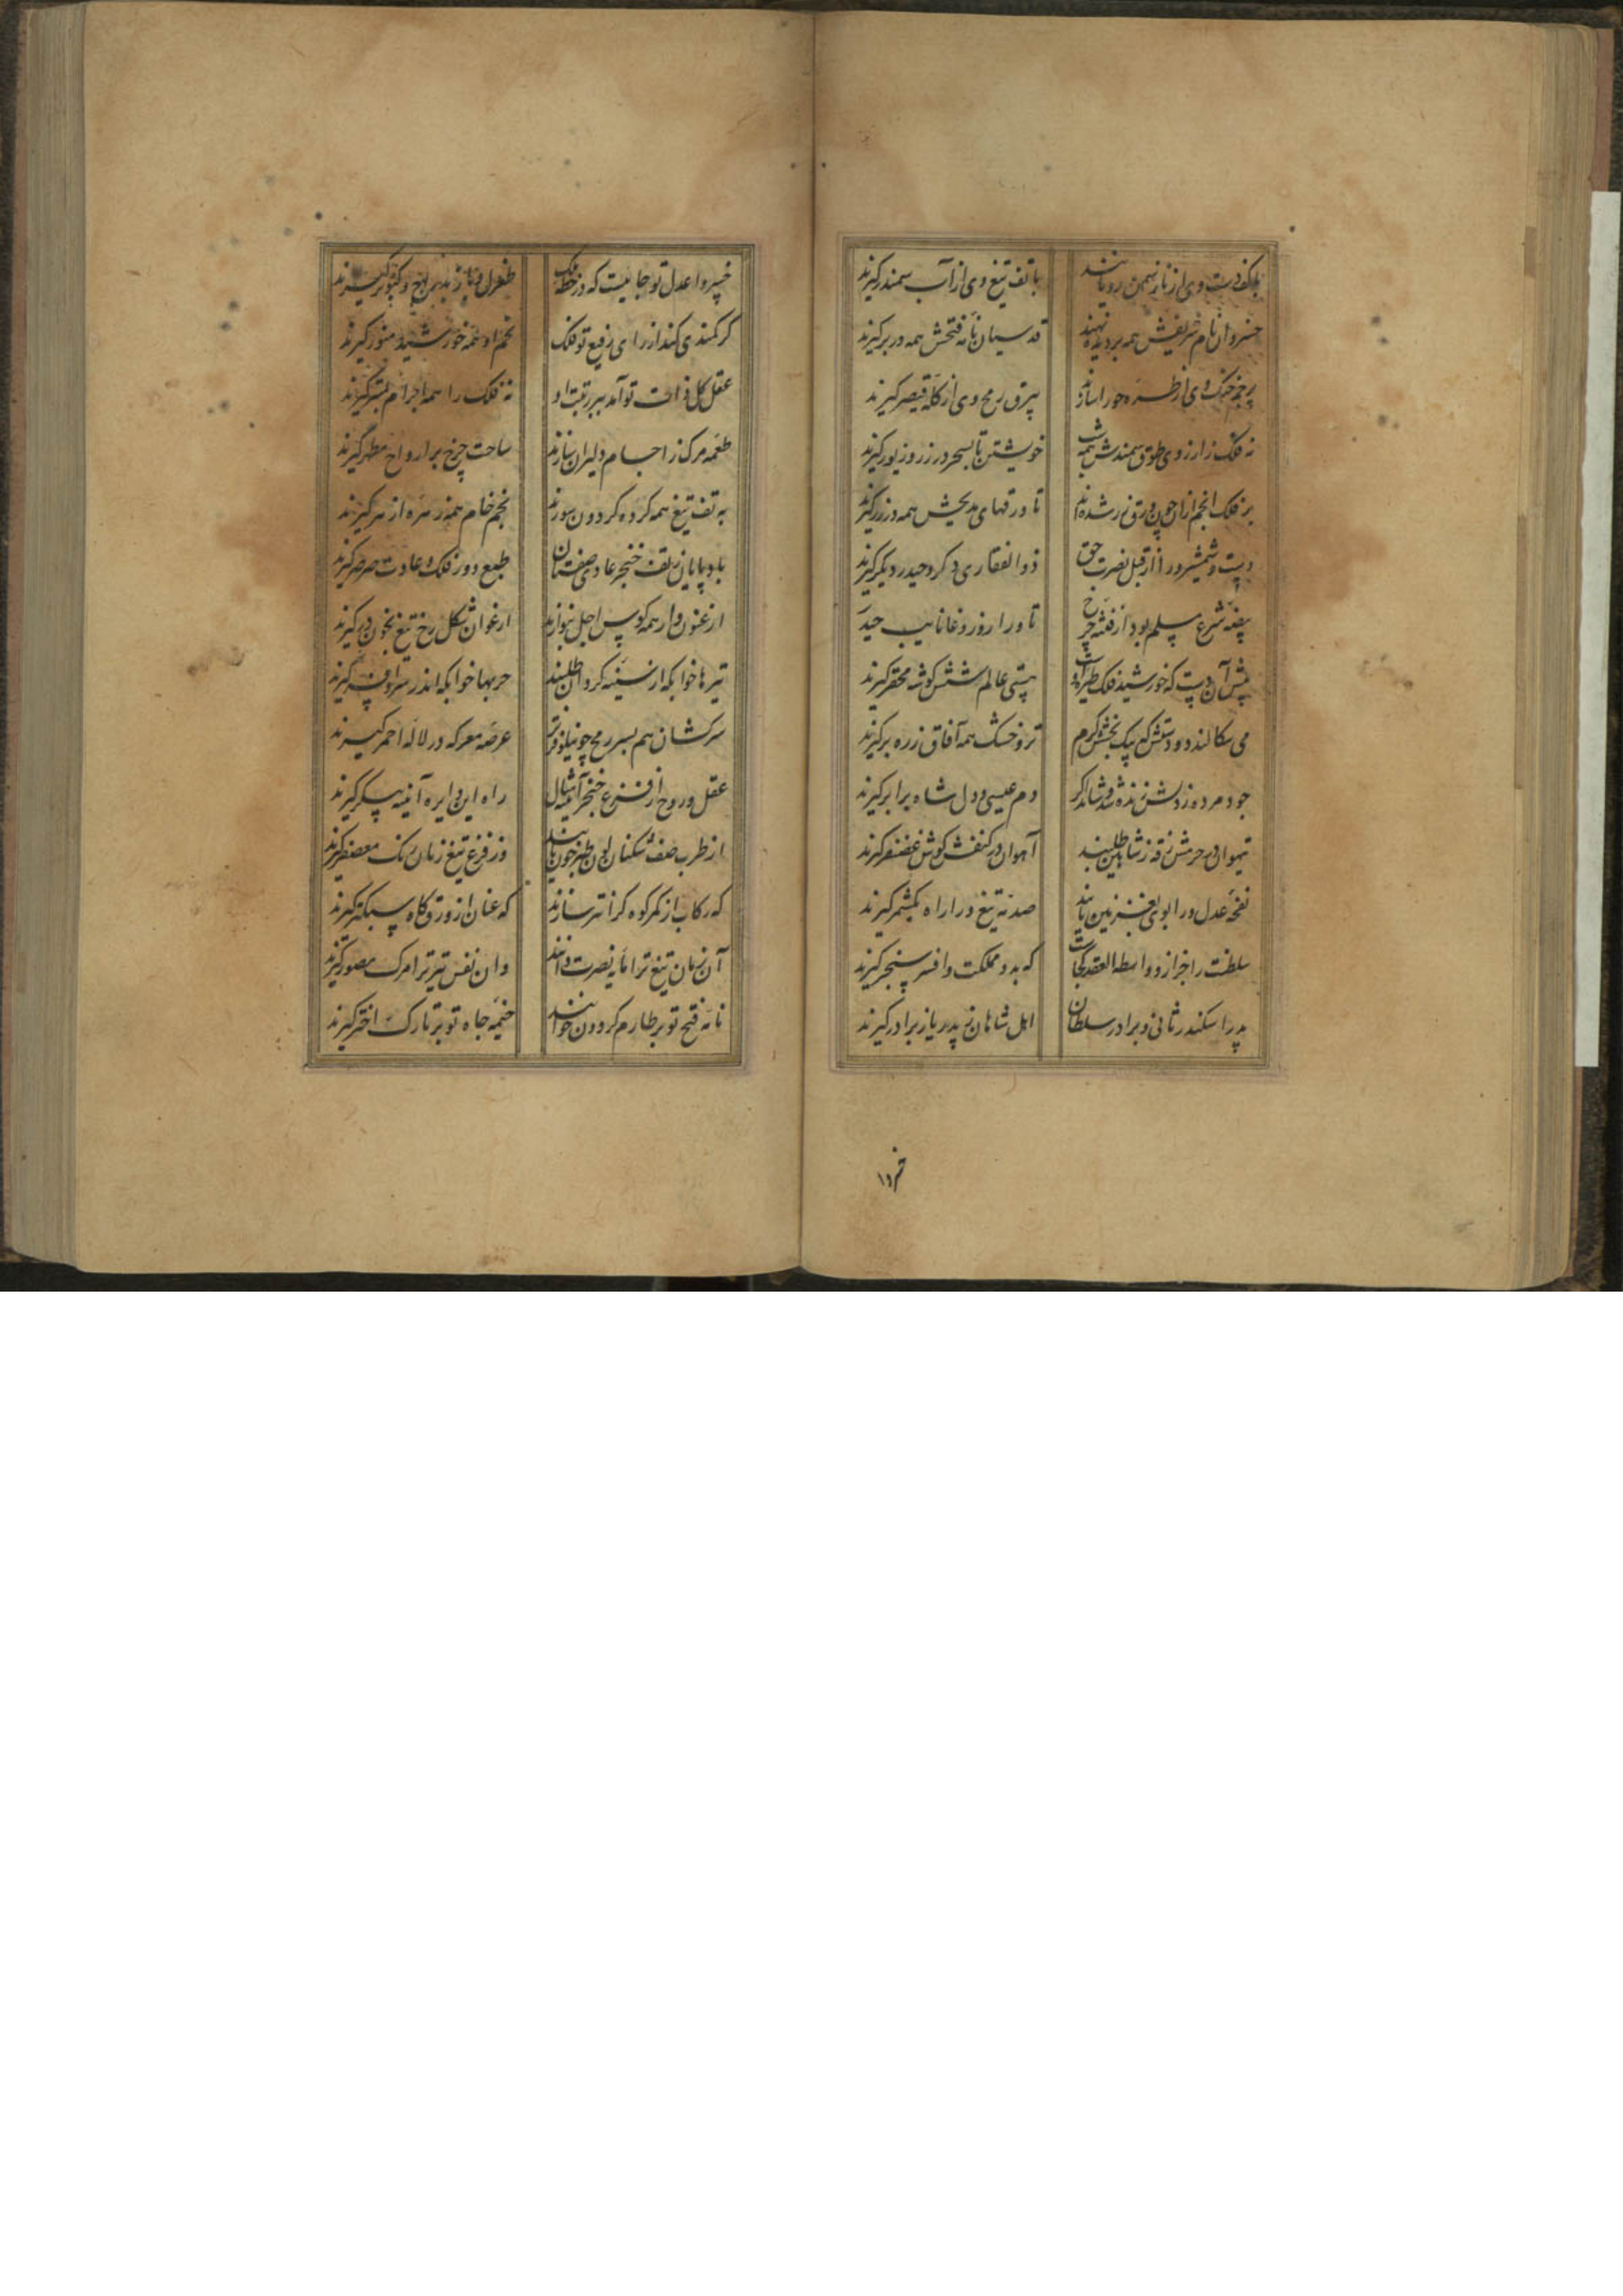 با کف دست وی از نار سمن رویانند با تف تیغ وی از آب سمندر گیرند
خسروان نام شریفش همه بر دیده نهند قدسیان نامه فتحش همه در بر گیرند
پرچم خنگ وی از طره حورا سازند بیرق رمح وی از کله قیصر گیرند
نه فلک ز آرزوی طوق سمندش همه شب خویشتن تا بسحر در زر و زیور گیرند
بر فلک انجم از آن چون ورق زر شده‌اند تا ورقهای مدیحش همه در زر گیرند
دست و شمشیر ورا از قبل نصرت حق ذوالفقاری دگر و حیدر دیگر گیرند
بیضه شرع مسلم بود از فتنه چرخ تا ورا روز وغا نایب حیدر
پیش آن دست که خورشید فلک بیتی عالم شش گوشه محقر گیرند
می سکالند دو دستش که بیک بخش کرم تر و خشک همه آفاق ز ره بر گیرند
جود مرده ز دلش زنده شد و شاید اگر دم عیسی و دل شاه برابر گیرند
تیهوان در حرمش زقه ز شاهین طلبند آهوان در کنفش گوش غضنفر گیرند
نفحه عدل ورا بوی بغزنین یابند صدمه تیغ ورا راه بکشمر گیرند
سلطنت را جز ازو واسطه العقد کجاست که بدو مملکت و افسر سنجر گیرند
پدر اسکندر ثانی و برادر سلطان اهل شاهان ز پدر یا ز برادر گیرند
خسروا عدل تو جاییست که در خطه ملک طغرل و باز بدین و کبوتر گیرند
گر کمندی کند از رای رفیع تو فلک خم او در خم خورشید منور گیرند
عقل کل ذات تو آمد که بر رتبت او نه فلک را همه اجرام بستر گیرند
طعمه مرگ ز اجسام دلیران سازند ساحت چرخ بر ارواح مطهر گیرند
به تف تیغ همه گرده گردون سوزند بخم خام همه زهره از هر گیرند
باد پایان ز تف خنجر عادی صفتان طبع دور فلک و عادت صرصر گیرند
ارغنون وار همه کوس اجل بنوازند ارغوان شکل رخ تیغ بخون در گیرند
تیرها خوابگه از سینه گردان طلبند حربها خوابگه اندر سر گیرند
سرکشان هم بسر رمح چو نیلوفر تر عرصه معرکه در لاله احمر گیرند
عقل و روح از فزع خنجر آیینه مثال راه این دایره آینه پیکر گیرند
از طرب صف شکنان لون باشند وز فزع تیغ زنان رنگ معصفر گیرند
گه رکاب از کمر کوه گرانتر سازند گه عنان از ورق کاه سبکتر گیرند
آن زمان تیغ ترا مایه نصرت دانند وان نفس تیر ترا مرگ مصور گیرند
نامه فتح تو بر طارم گردون خوانند خیمه جاه تو بر تارک اختر گیرند